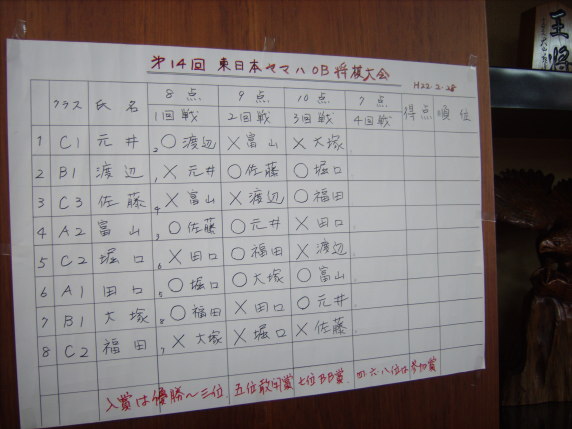 王将
第14回 東日本ヤマハOB将棋大会
H22.2.28
クラス 氏名 8点 9点 10点 7点 得点 順位
1回戦 2回戦 3回戦 4回戦
1 C1 元井 2 ○ 渡辺 × 富山 × 大塚
2 B1 渡辺 1 × 元井 ○ 佐藤 ○ 堀口
3 C3 佐藤 4 × 富山 × 渡辺 ○ 福田
4 A2 富山 3 ○ 佐藤 ○ 元井 × 田口
5 C2 堀口 6 × 田口 ○ 福田 × 渡辺
6 A1 田口 5 ○ 堀口 ○ 大塚 ○ 富山
7 B1 大塚 8 ○ 福田 × 田口 ○ 元井
8 C2 福田 7 × 大塚 × 堀口 × 佐藤
入賞は優勝〜三位、五位敢闘賞 七位BB賞、四、六、八位は参加賞